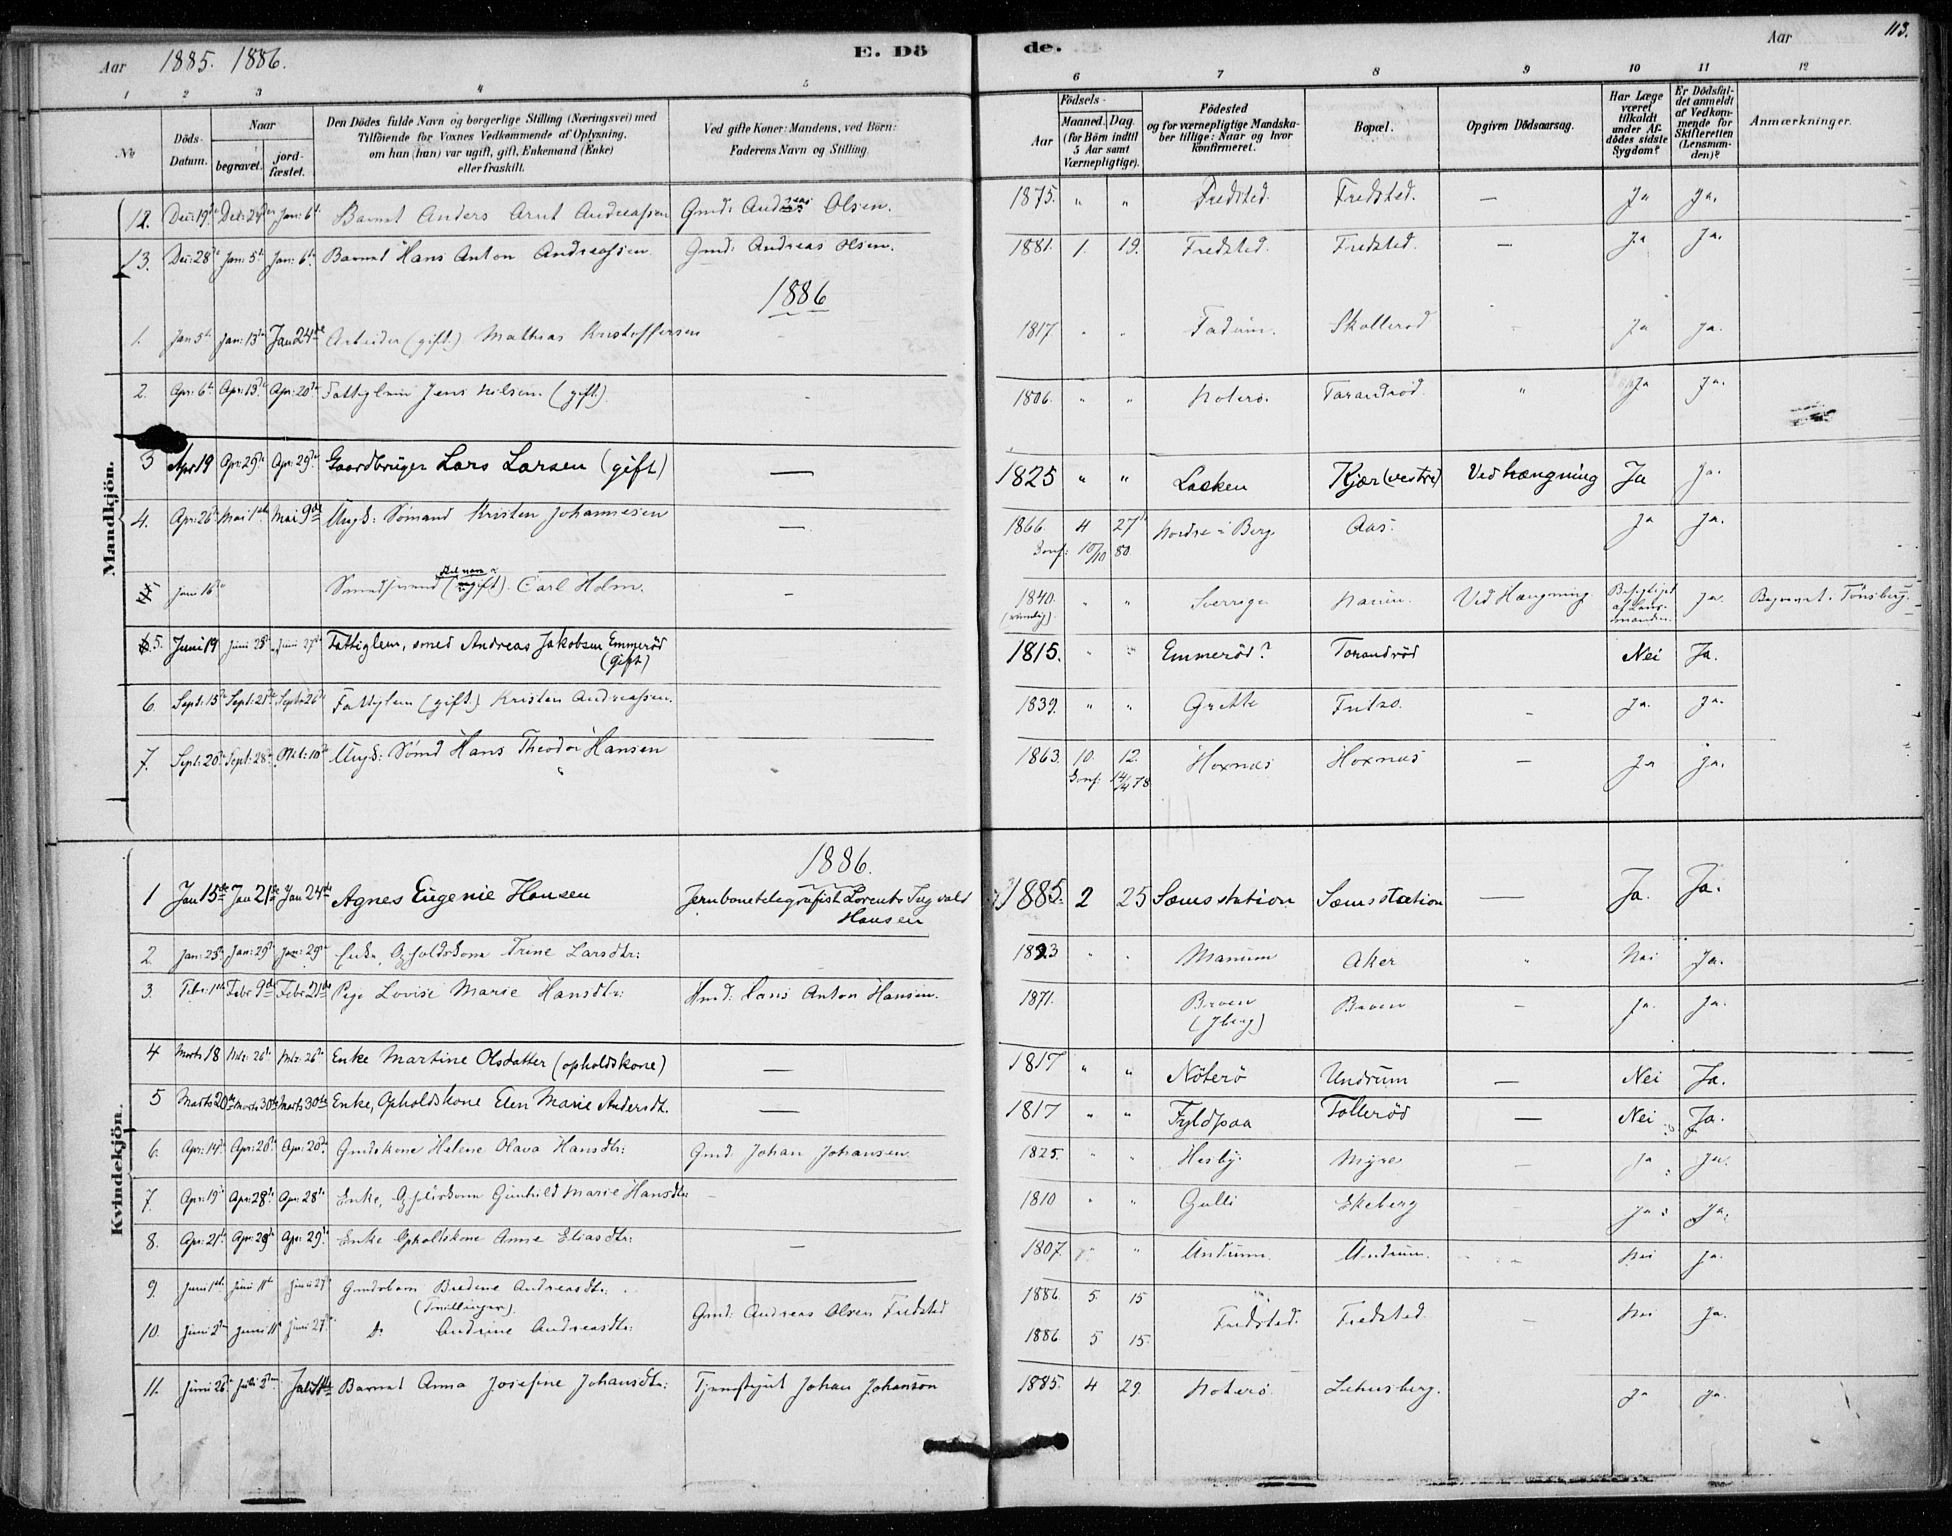 Aar 1885. 1886. E. Dö de. Aar 113.
1 2 3 4 5 6 7 8 9 10 11 12
No Döds-Datum. Naar begravet. jordfæstet. Den Dödes fulde Navn og borgerlige Stilling (Næringsvei) med Tilföiende for Voxnes Vedkommende af Oplysning, om han (hun) var ugift, gift, Enkemand (Enke) eller fraskilt. Ved gifte Koner: Mandens, ved Börn: Faderens Navn og Stilling. Födsels- Aar Maaned. Dag. (for Börn indtil 5 Aar samt Værnepligtige). Födested og for værnepligtige Mandskaber tillige: Naar og hvor Konfirmeret. Bopæl. Opgiven Dödsaarsag. Har Læge været tilkaldt under Afdödes sidste Sygdom? Er Dödsfaldet anmeldt af Vedkommende for Skifteretten (Lensmanden)? Anmærkninger.
Mandkjön.
12. Dec: 19de Dec: 29de Jan: 6te Barnet Anders Arnt Andreassen Gmd: Andreas Olsen. 1875. " " Fredsted. Fredsted. — Ja Ja.
13. Dec: 28de Jan: 5te Jan: 6te Barnet Hans Anton Andreassen Gmd: Andreas Olsen. 1881. 1. 19. Fredsted. Fredsted. — Ja Ja.
1886
1. Jan 5te Jan: 13de Jan 24de Arbeider (gift.) Mathias Kristoffersen - 1817 " " Fadum. Skallerød Ja Ja.
2. Apr: 6te Apr: 13de Apr: 20de Fattiglem Jens Nilsen. (gift). - 1806. " " Noterø. Tarandrød. " Ja Ja.
3 Apr 19 Apr: 29de Apr: 29de Gaardbruger Lars Larsen (gift) — 1825 " " Lasken Kjær (vestre) Ved hængning Ja Ja.
4. Apr: 26de Mai 1ste Mai 9de Ungk: Sømand Kristen Johannesen — 1866. 4 27 Nordre i Berg. Aas. Ja Ja.
Konf: 10/10 80.
Juni 16de (ugift). Carl Holm. - 1840. " " Sverrige Narum. Ved Hængning. Besigtiget af Lensmanden. Ja. Begravet i Tönsberg.
5. Juni 19 Juni 25de Juni 27de Fattiglem, smed Andreas Jakobsen Emmeröd (gift) 1815. " " Emmeröd? Torandröd Nei Ja.
6. Sept: 15de Sept: 21de Septbr 26de Fattiglem (gift.) Kristen Andreassen. 1839. " " Grette - Ja. Ja.
7. Sept: 20de Sept: 28de Okt: 10de Ungk: Sømd Hans Theodor Hansen - 1863. 10. 12. Hoxnas Hoxnas — Ja Ja.
Konf: 14/4 78
Kvindekjön.
1886.
1 Jan 15de Jan 21de Jan 24de Agnes Eugenie Hansen Jernbanetelegrafist Lorents Ingvald Hansen 1885. 2 25 Sæms station Sæms station — Ja. Ja.
2. Jan: 23de Jan: 29de Jan: 29de Enke, Opholdskone Trine Larsdtr: 1823 " " Manum Aker " Nei Ja.
3. Febr: 1ste Febr 9de Febr 21de Pige Lovise Marie Hansdtr: Hmd: Hans Anton Hansen. 1871. Broen Broen — Ja. Ja.
4 Marts 18 Mrz: 26de Mrz: 26de Enke Martine Olsdatter (opholdskone) — 1817 " " Nöterö Undrum — Nei Ja.
5 Marts 20de Marts 30de Marts 30de Enke, Opholdskone Elen Marie Andersdt. — 1817 " " Fyldpaa Tolleröd — Nei Ja.
6. Apr: 14de Apr: 20de Apr: 20de Gmdskone Helene Olava Hansdtr: Gmd: Johan Johansen 1825. " " Hesby. Myre — Ja Ja.
7. Apr: 19de Apr: 28de Apr: 28de Enke, Opholdskone Gunhild Marie Hansdtr - 1810 " " Gulli Ekeberg — Ja Ja.
8. Apr: 21de Apr: 29de Apr: 29de Enke Opholdskone Anne Eliasdtr: — 1807. " " Undrum. Undrum. Nei Ja.
9. Juni 1ste Juni 11te Juni 27de Gmdsbarn Bredine Andreasdtr: 1886. 5. 15
(Tvillinger). Gmd: Andreas Olsen Fredsted Fredsted. Fredsted — Nei Ja.
10. Juni 2den Juni 11te Juni 27de Do Andrine Andreasdtr: 1886 5 15.
11. Juni 26de Juli 2den Juli 11te Barnet Anna Josefine Johansdtr: Tjenestgut Johan Johanson 1885. 4 29. Noterø. Lehnsberg. Ja Ja.